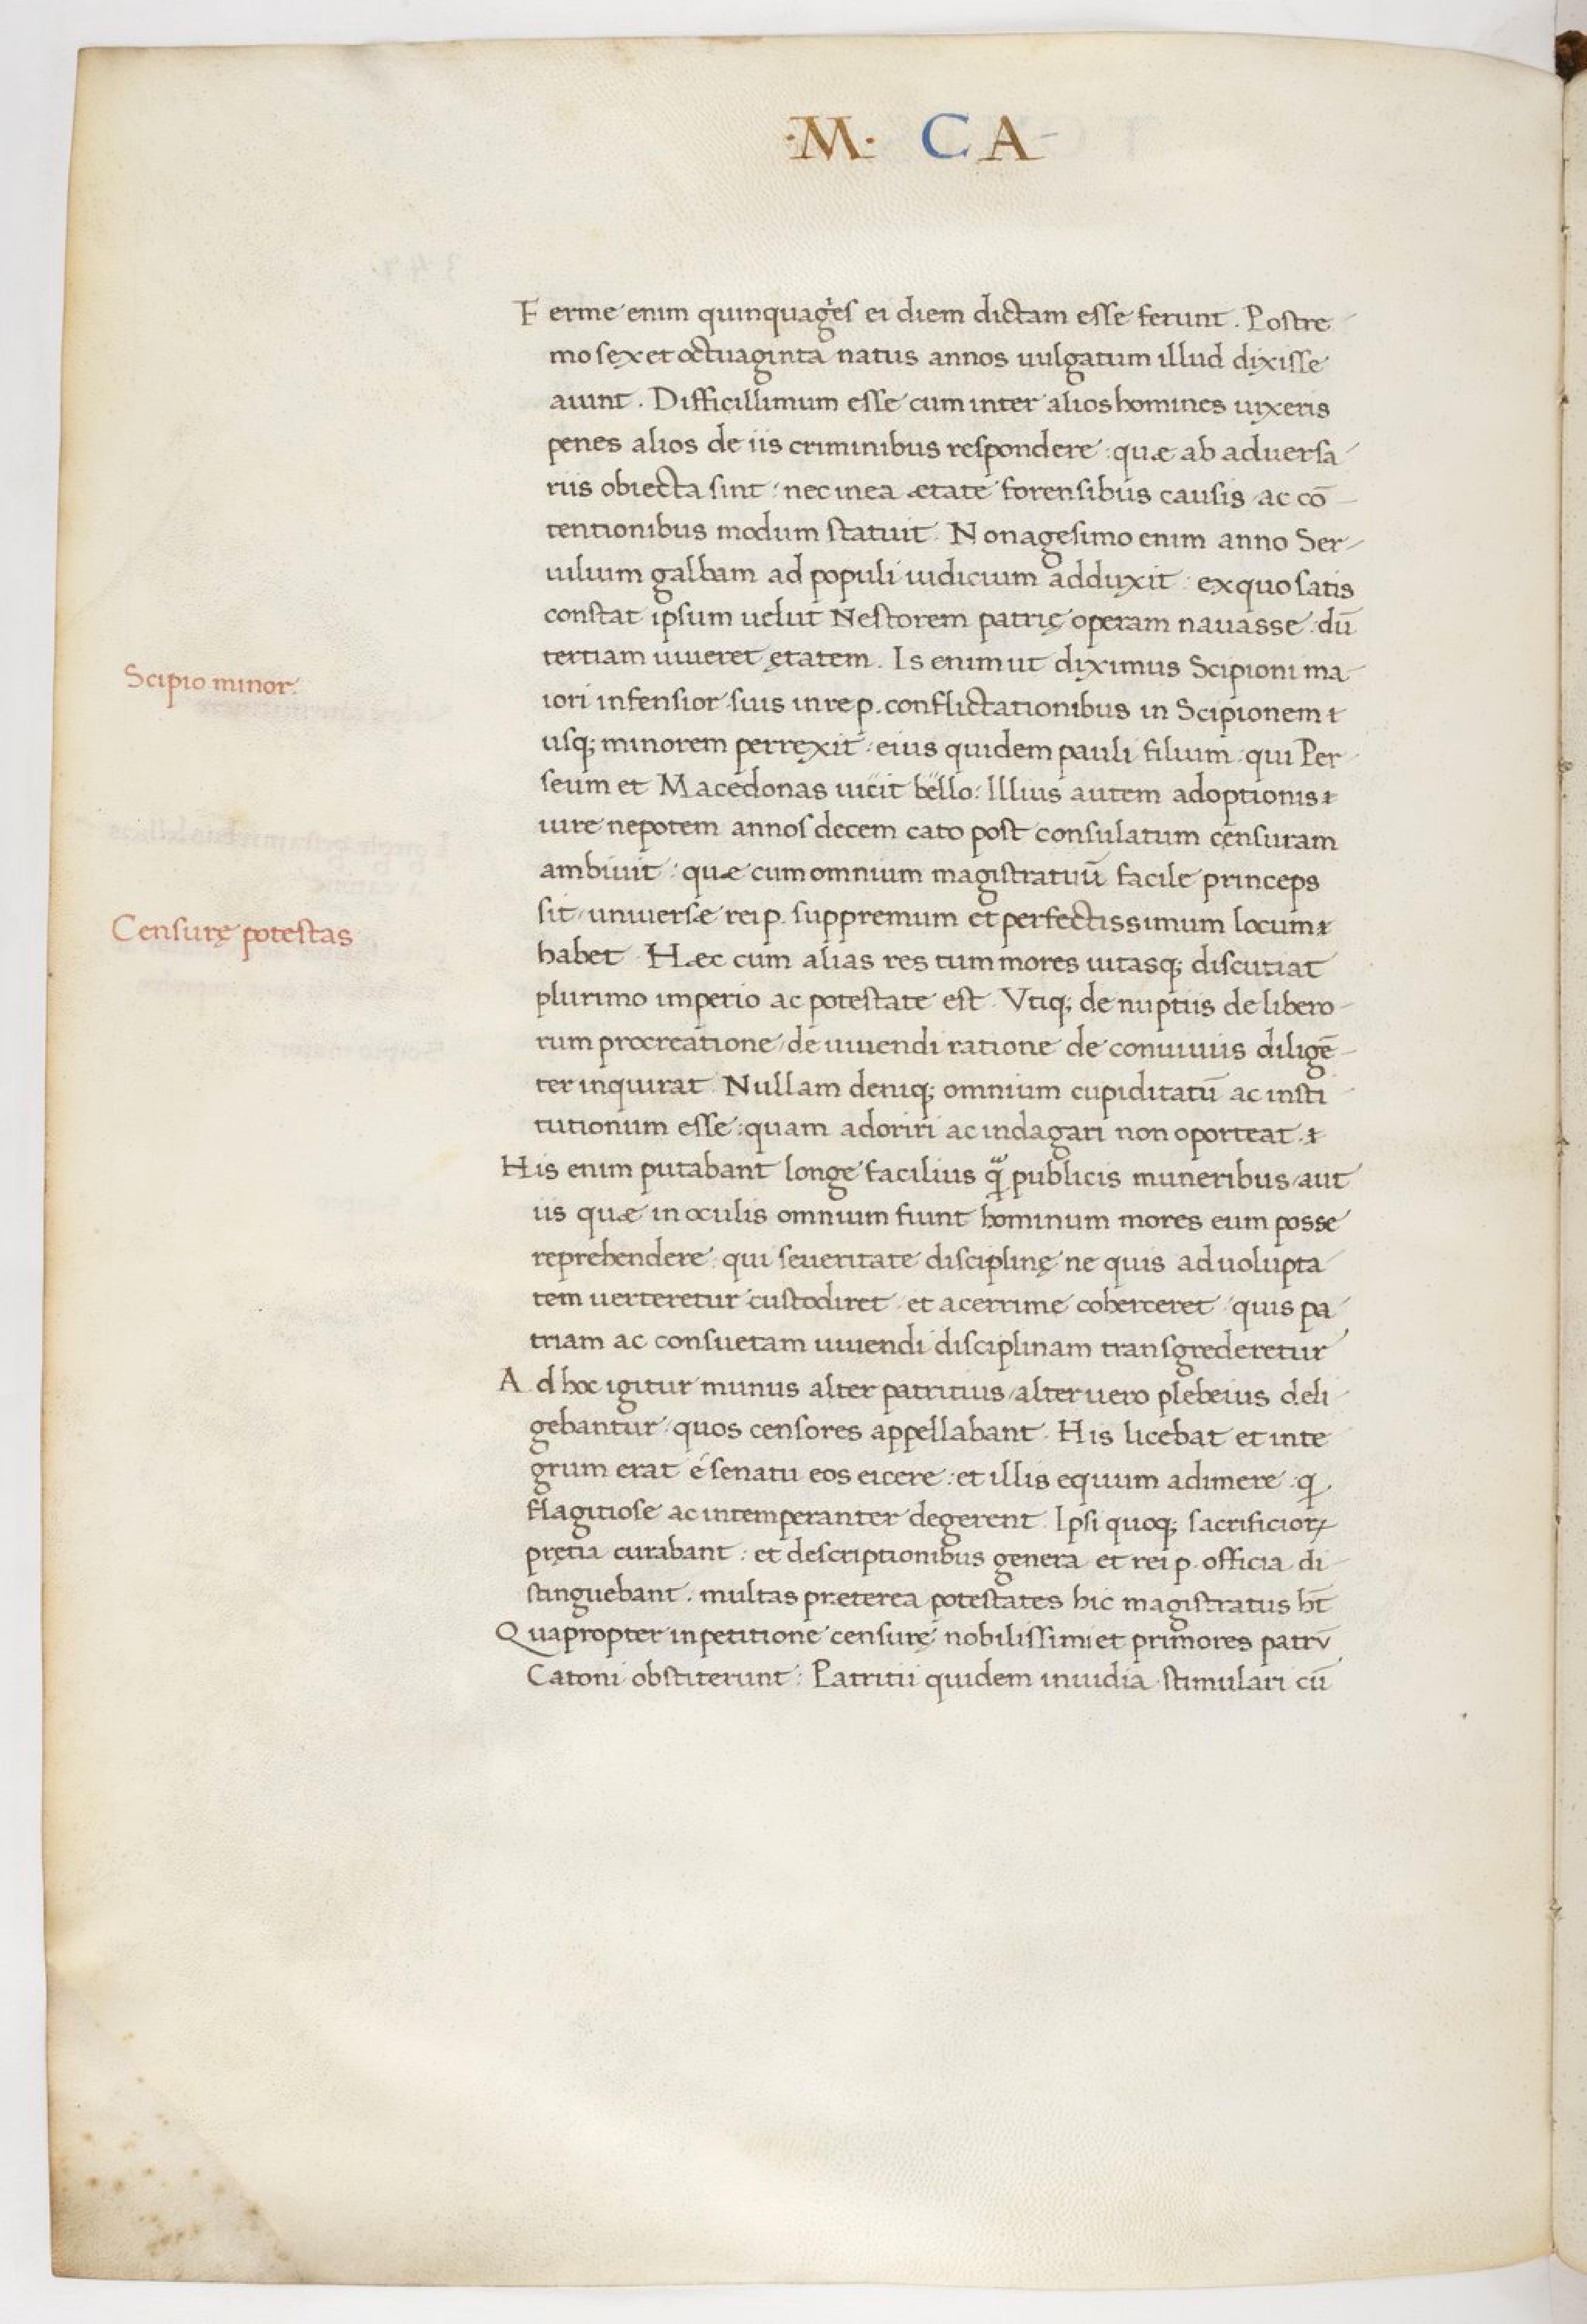 ·M· CA-
Ferme enim quinquages ei diem dictam esse ferunt. Postre
mo sex et octuaginta natus annos uulgatum illud dixisse
aiunt. Difficillimum esse cum inter alios homines uixeris
penes alios de iis criminibus respondere: quæ ab aduersa
riis obiecta sint: nec in ea ætate forensibus causis ac cō
tentionibus modum statuit. Nonagesimo enim anno Ser-
uilium galbam ad populi iudicium adduxit: ex quo satis
constat ipsum uelut Nestorem patrię operam nauasse: dū
tertiam uiueret ętatem. Is enim ut diximus Scipioni ma-
Scipio minor.
iori infensior suis in re p. conflictationibus in Scipionem
usq; minorem perrexit: eius quidem pauli filium: qui Per
seum et Macedonas uicit bello: Illius autem adoptionis
iure nepotem annos decem cato post consulatum censuram
ambiuit: quæ cum omnium magistratuū facile princeps
sit/ uniuersæ rei p. suppremum et perfectissimum locum
Censurę potestas
habet. Hæc cum alias res tum mores uitasq; discutiat
plurimo imperio ac potestate est. Vtiq; de nuptiis de libero-
rum procreatione/ de uiuendi ratione de conuiuiis diligē-
ter inquirat. Nullam deniq; omnium cupiditatū ac insti
tutionum esse: quam adoriri ac indagari non oporteat.
His enim putabant longe facilius q̃ publicis muneribus/ aut
iis quæ in oculis omnium fiunt hominum mores eum posse
reprehendere: qui seueritate disciplinę ne quis ad uolupta
tem uerteretur custodiret: et acerrime coherceret: quis pa
triam ac consuetam uiuendi disciplinam transgrederetur
Ad hoc igitur munus alter patritius/ alter uero plebeius deli
gebantur: quos censores appellabant. His licebat et inte
grum erat é senatu eos eicere: et illis equum adimere: q
flagitiose ac intemperanter degerent. Ipsi quoq; sacrificioꝝ
prętia curabant: et descriptionibus genera et rei p. officia di-
stinguebant. multas preterea potestates hic magistratus hr̄t
Quapropter in petitione censurę nobilissimi et primores patrū
Catoni obstiterunt: Patritii quidem inuidia stimulari cū